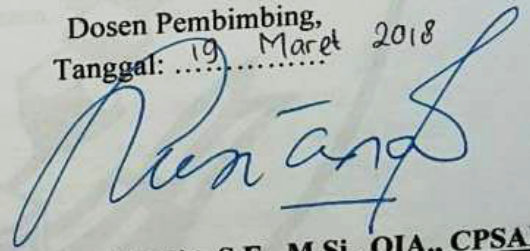 Dosen Pembimbing,
Tanggal: 19 Maret 2018
S.E., M.Si., QIA., CPSA